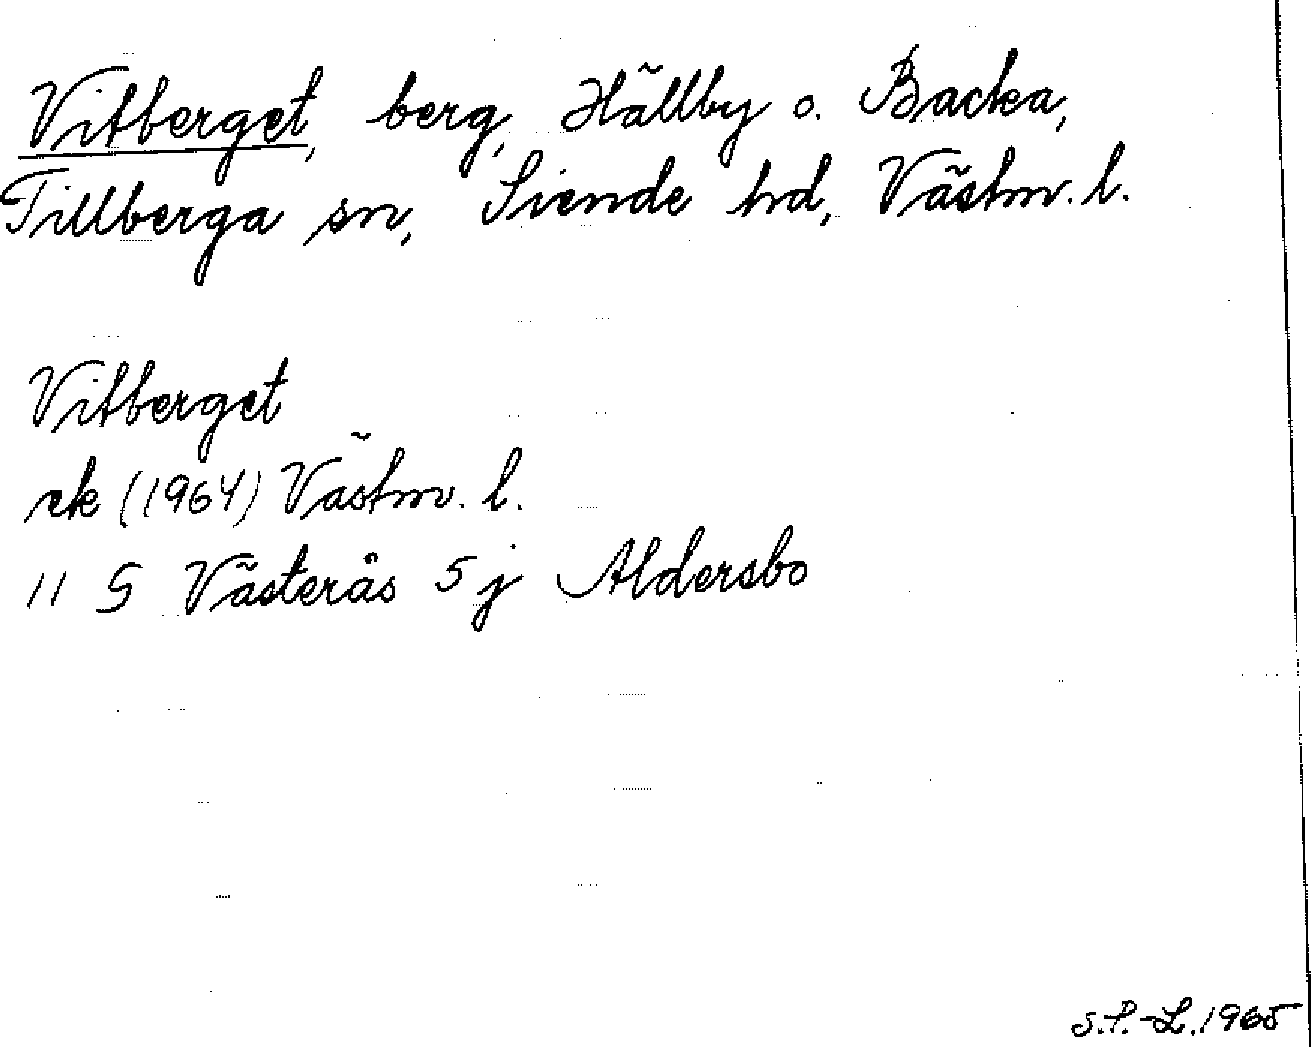 Vitberget, berg, Hällby o. Backa,
Tillberga sn, Siende hd, Västm. l.
Vitberget
rek (1964) Västm. l.
11 G Västerås 5 j Aldersbo
S.P.-L. 1965